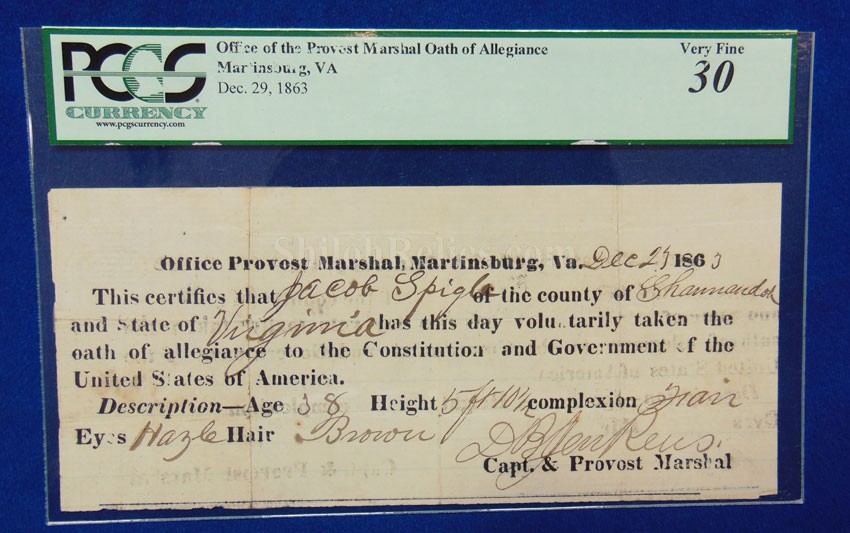 PCGS
CURRENCY
www.pcgscurrency.com
Office of the Provost Marshal Oath of Allegiance
Martinsburg, VA
Dec. 29, 1863
Very Fine
30
ShilohRelics.com
Office Provost Marshal, Martinsburg, Va. Dec 1863
This certifies that Jacob of the county of Shannandoh
and State of Virginia has this day voluntarily taken the
oath of allegiance to the Constitution and Government of the
United States of America.
Description—Age 38 Height 5 ft 10½ complexion Fair
Eyes Hazle Hair Brown
Capt. & Provost Marshal